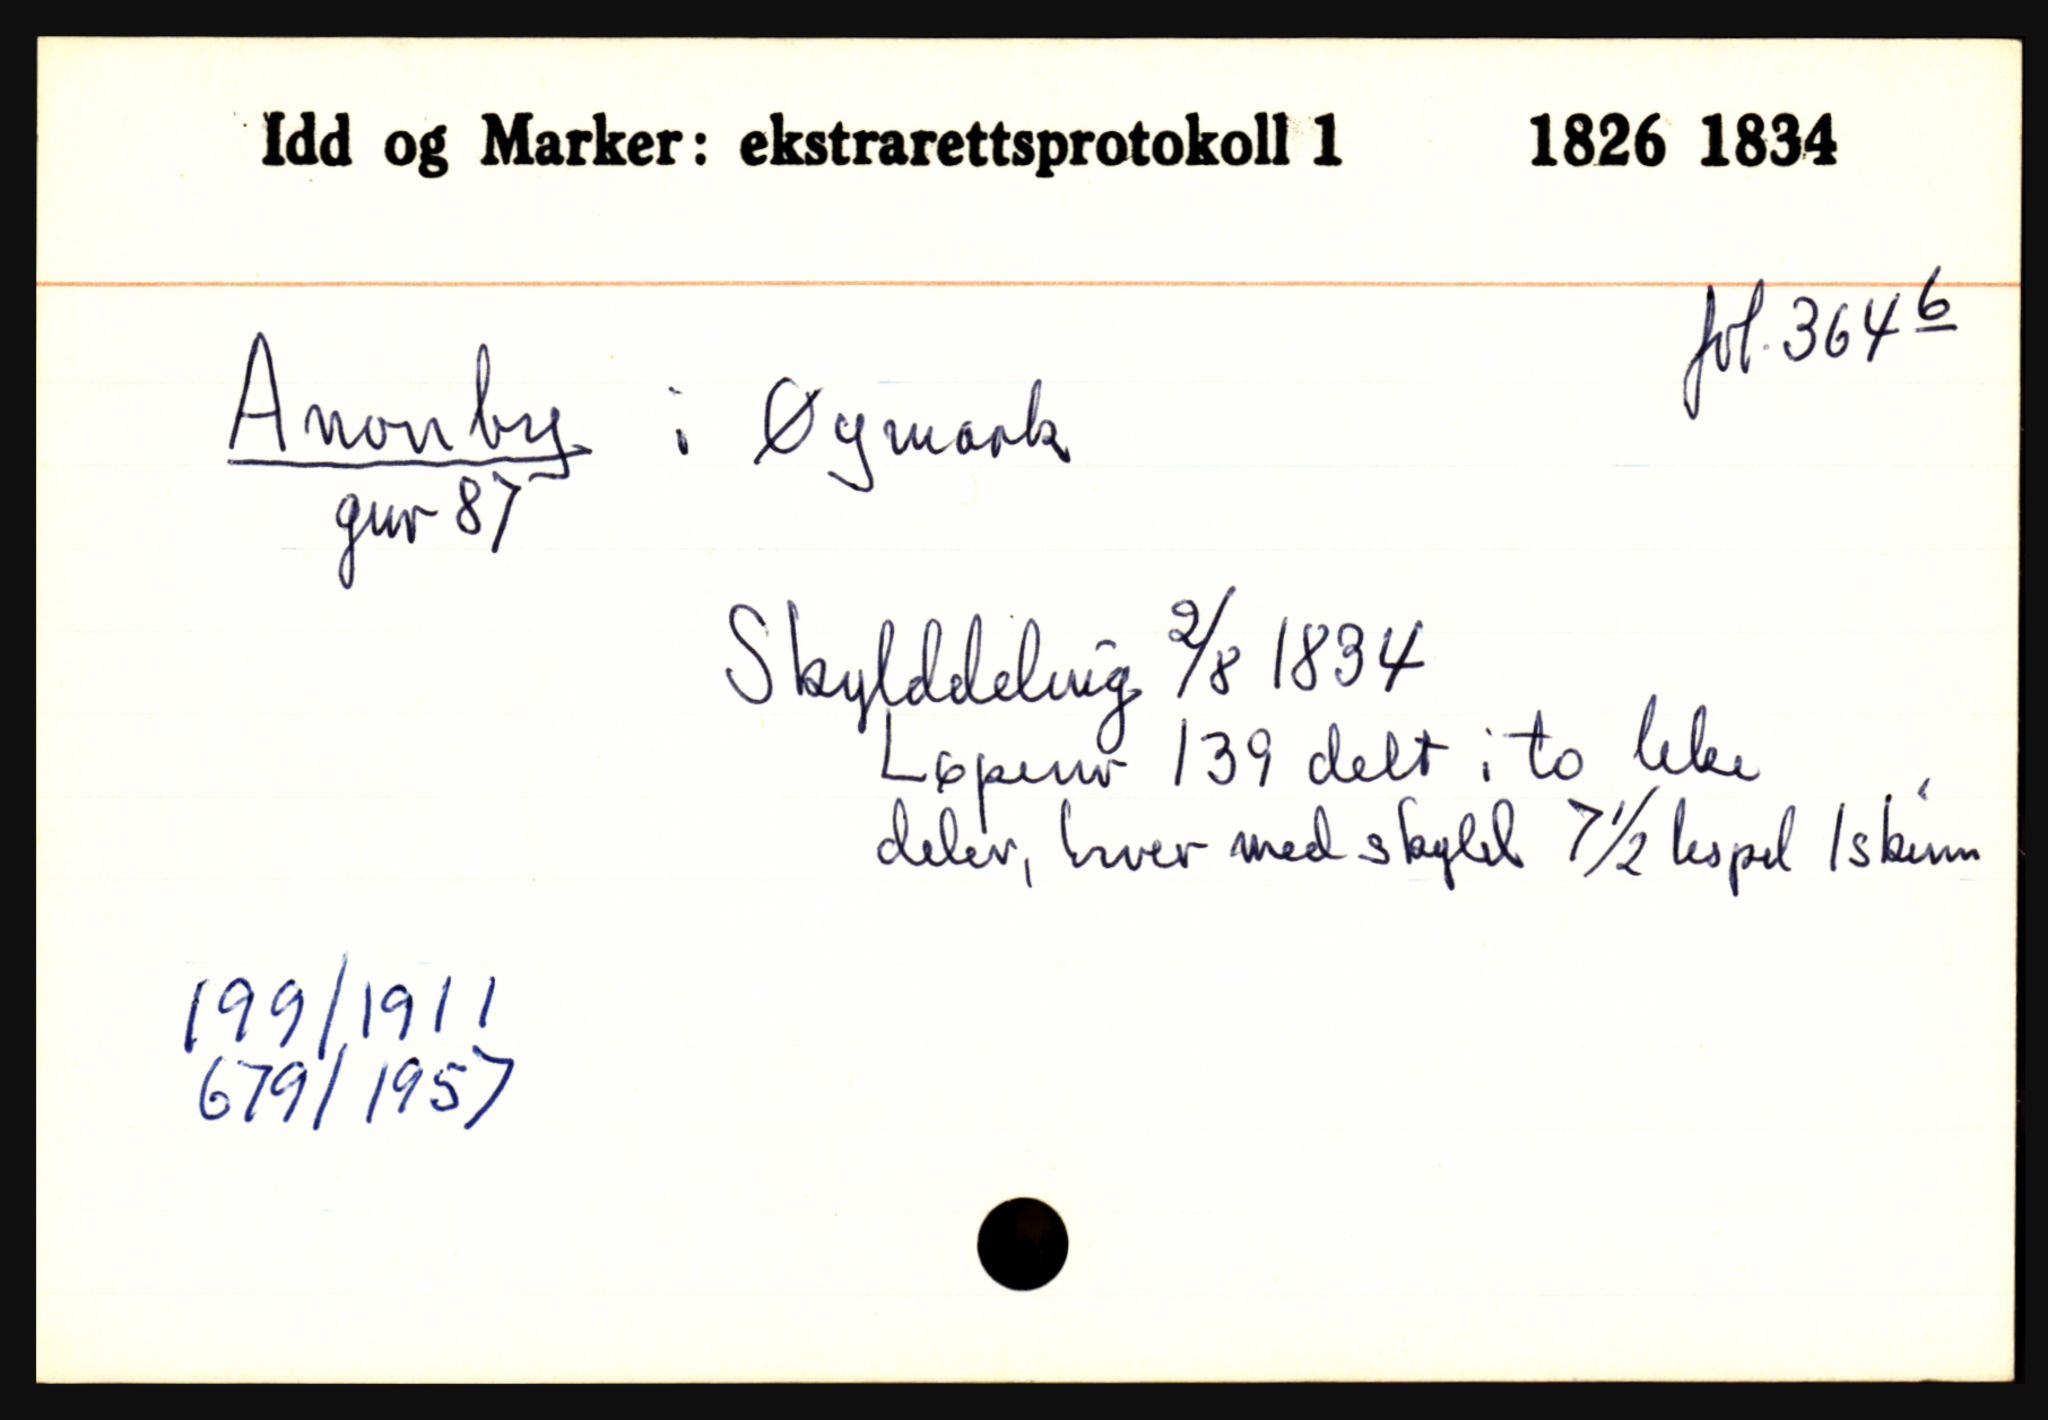 Idd og Marker: ekstrarettsprotokoll 1 1826 1834
fol. 364 b
Anonby i Øymark
gnr 87
Skylddeling 2/8 1834
Løpenr 139 delt i to like
deler, hver med skyld 7 1/2 lispd 1 skinn
199/1911
679/1957